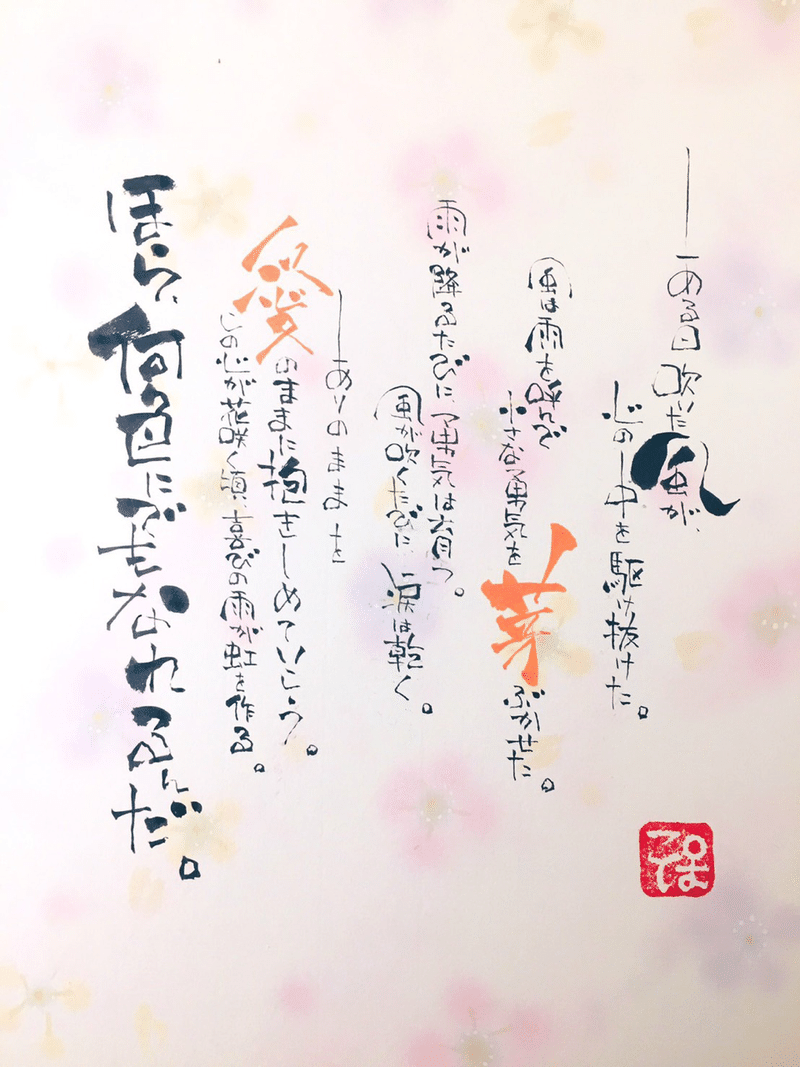 ある日吹いた風が、
心の中を駆け抜けた。
風は雨を呼んで
小さな勇気を芽ぶかせた。
雨が降るたびに、勇気は育つ。
風が吹くたびに、涙は乾く。
ありのままを
愛のままに抱きしめていこう。
この心が花咲く頃、喜びの雨が虹を作る。
ほら、何色にでもなれるんだ。